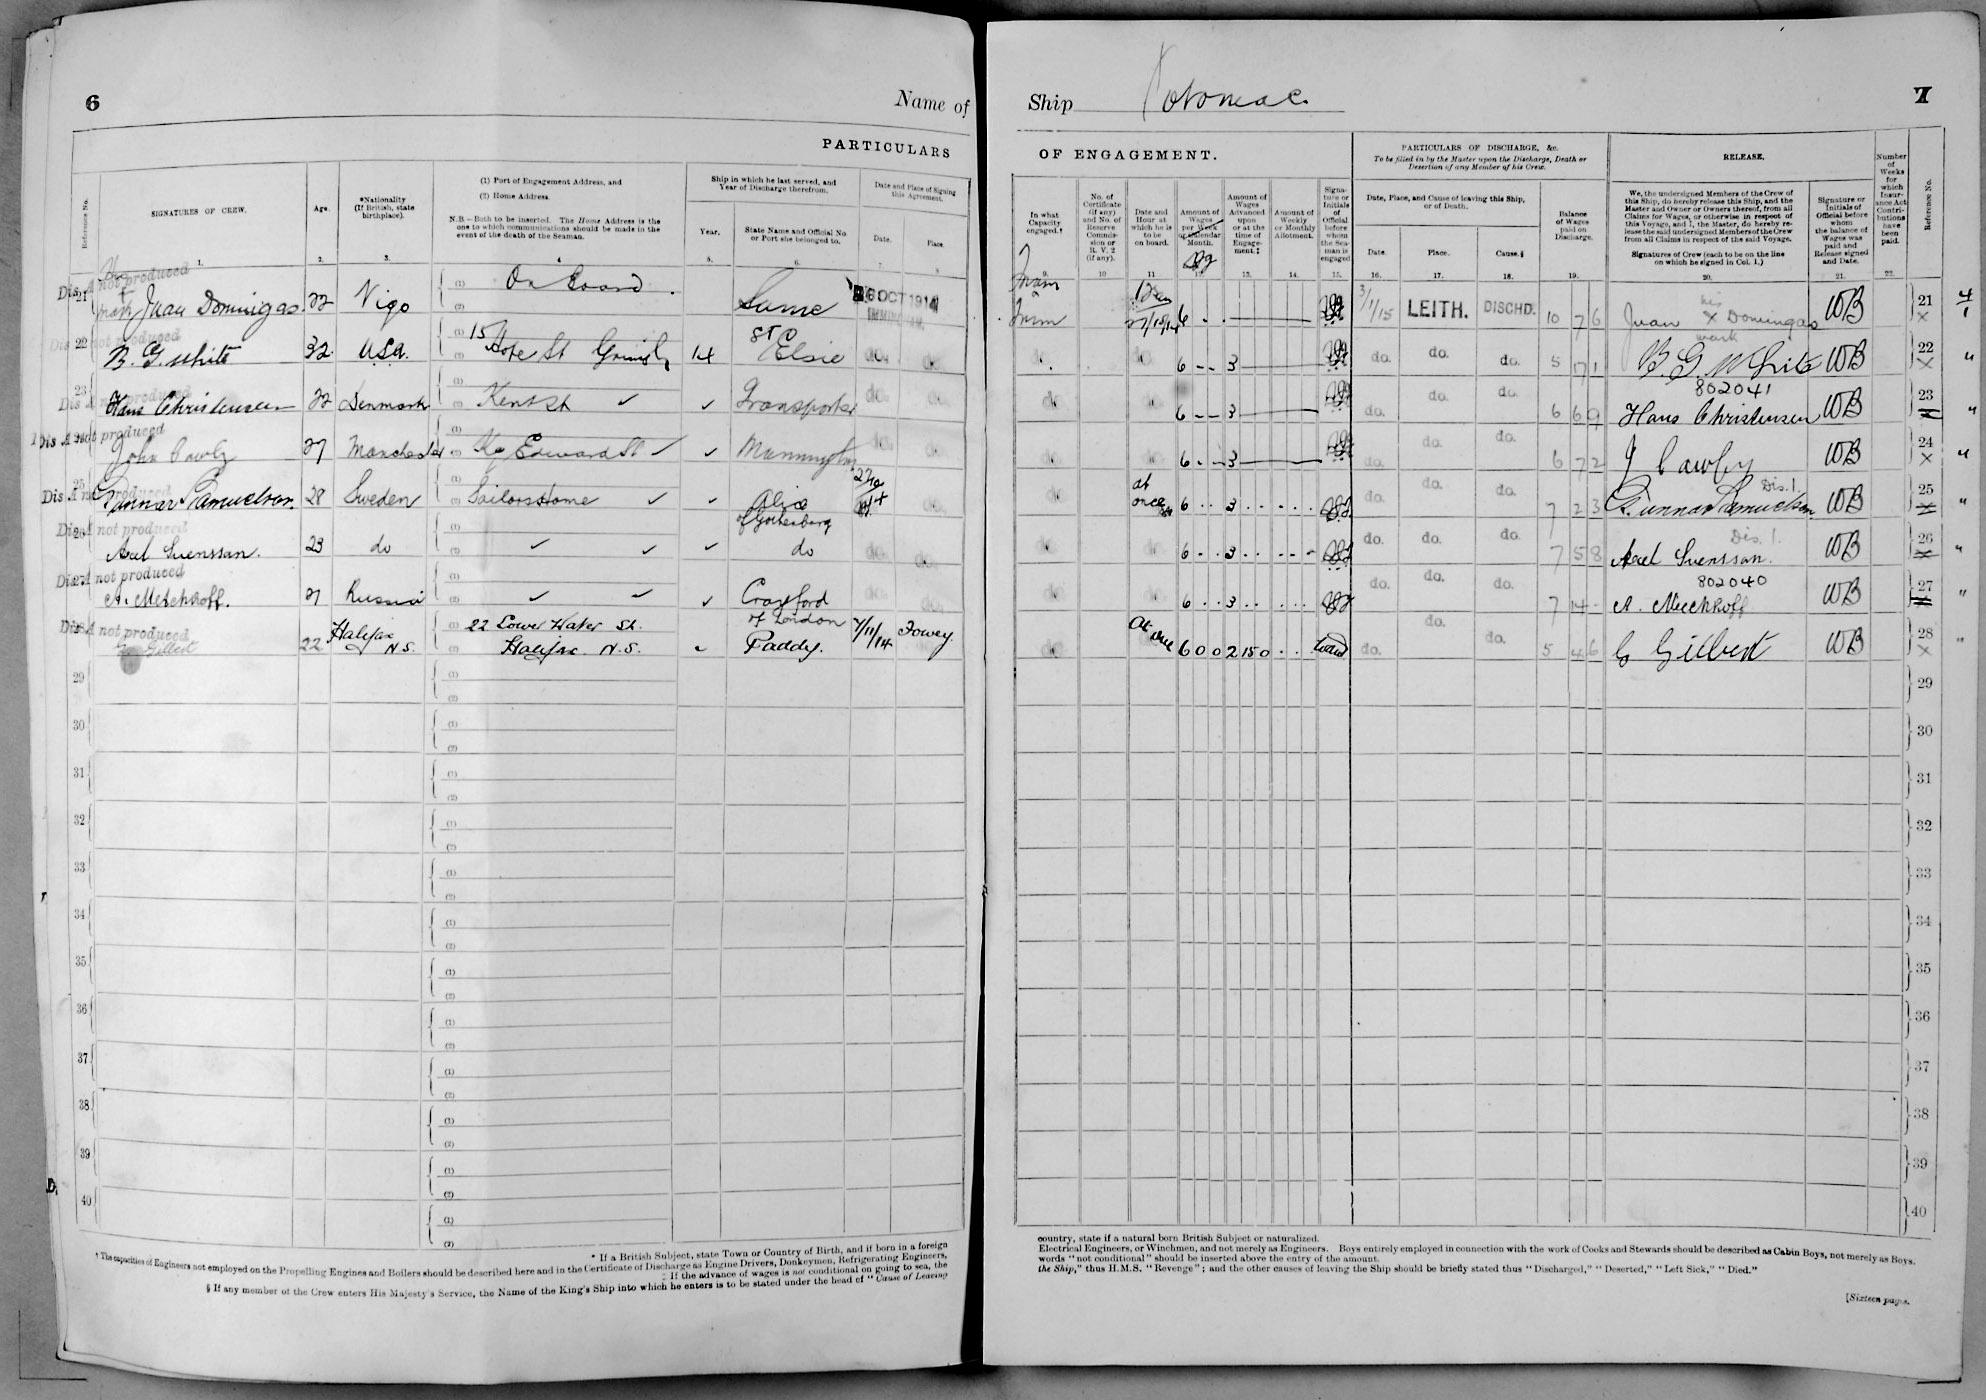 6
Name of
PARTICULARS
Reference No.
SIGNATURES OF CREW.
Age.
*Nationality
(If British, state
birthplace).
(1) Port of Engagement Address, and
(2) Home Address.
N.B.—Both to be inserted. The Home Address is the
one to which communications should be made in the
event of the death of the Seaman.
Ship in which he last served, and
Year of Discharge therefrom.
Year.
State Name and Official No.
or Port she belonged to.
Date and Place of Signing
this Agreement.
Date.
Place.
1. 2. 3. 4. 5. 6. 7. 8.
Dis A not produced
21 Juan Domingas 22 Vigo (1) On Board. (2) Same OCT 1914 IMMINGHAM
Dis not produced
22 B. G. White 32 U.S.A. (1) 15 Hope St Grimsby (2) 14 St Elsie do. do.
Dis A not produced
23 Hans Christensen 22 Denmark (1) Kent St ✓ (2) ✓ Transporter do. do.
Dis A not produced
John Cawley 27 Manchester (1) Kg Edward St ✓ (2) ✓ do. do.
Dis A not produced
25 Gunnar Samuelson. 28 Sweden (1) Sailors Home ✓ (2) ✓ Alice
of Gothenburg
Dis A not produced
26 Axel Svenssan. 23 do (1) ✓ (2) ✓ ✓ do do. do.
Dis A not produced
27 A. Melchhoff. 21 Russia (1) ✓ (2) ✓ ✓ Crayford
of London do. do.
Dis A not produced
G Gilbert 22 Halifax N.S. (1) 22 Lower Water St. (2) Halifax. N.S. Paddy. 7/11/14 Fowey
29 (1) (2)
30 (1) (2)
31 (1) (2)
32 (1) (2)
33 (1) (2)
34 (1) (2)
35 (1) (2)
36 (1) (2)
37 (1) (2)
38 (1) (2)
39 (1) (2)
40 (1) (2)
* If a British Subject, state Town or Country of Birth, and if born in a foreign
† The capacities of Engineers not employed on the Propelling Engines and Boilers should be described here and in the Certificate of Discharge as Engine Drivers, Donkeymen, Refrigerating Engineers,
‡ If the advance of wages is not conditional on going to sea, the
§ If any member of the Crew enters His Majesty's Service, the Name of the King's Ship into which he enters is to be stated under the head of "Cause of Leaving
Ship Potomac.
7
OF ENGAGEMENT.
PARTICULARS OF DISCHARGE, &c.
To be filled in by the Master upon the Discharge, Death or
Desertion of any Member of his Crew.
RELEASE.
Number
of
Weeks
for
which
Insur-
ance Act
Contri-
butions
have
been
paid.
Reference No.
In what
Capacity
engaged.†
No. of
Certificate
(if any)
and No. of
Reserve
Commis-
sion or
R. V. 2
(if any).
Date and
Hour at
which he is
to be
on board.
Amount of
Wages
per Week
or Calendar
Month.
Amount of
Wages
Advanced
upon
or at the
time of
Engage-
ment.‡
Amount of
Weekly
or Monthly
Allotment.
Signa-
ture or
Initials
of
Official
before
whom
the Sea-
man is
engaged
Date, Place, and Cause of leaving this Ship,
or of Death.
Date.
Place.
Cause.§
Balance
of Wages
paid on
Discharge.
We, the undersigned Members of the Crew of
this Ship, do hereby release this Ship, and the
Master and Owner or Owners thereof, from all
Claims for Wages, or otherwise in respect of
this Voyage, and I, the Master, do hereby re-
lease the said undersigned Members of the Crew
from all Claims in respect of the said Voyage.
Signatures of Crew (each to be on the line
on which he signed in Col. 1.)
Signature or
Initials of
Official before
whom
the balance of
Wages was
paid and
Release signed
and Date.
9. 10 11 12. 13. 14. 15. 16. 17. 18. 19. 20. 21. 22.
6 3/11/15 LEITH. DISCHD. 10 7 6 Juan his X mark Domingas WB 21 X
do. 6 3 do. do. do. 5 17 1 B. G. White WB 22 X "
802041
do. 6 3 do. do. do. 6 6 9 Hans Christensen WB 23 "
do. 6 3 do. do. do. 6 7 2 J Cawley WB 24 X "
Dis. 1.
do. at once 6 3 do. do. do. 7 2 3 Gunnar Samuelson WB 25 "
Dis. 1.
do. 6 3 do. do. do. 7 5 8 Axel Svenssan. WB 26 "
802040
do. 6 3 do. do. do. 7 14 - A. Melchhoff WB 27 "
do. At once 6 0 0 2 15 0 do. do. do. 5 4 6 G Gilbert WB 28 X "
29
30
31
32
33
34
35
36
37
38
39
40
country, state if a natural born British Subject or naturalized.
Electrical Engineers, or Winchmen, and not merely as Engineers. Boys entirely employed in connection with the work of Cooks and Stewards should be described as Cabin Boys, not merely as Boys.
words "not conditional" should be inserted above the entry of the amount.
the Ship," thus H.M.S. "Revenge"; and the other causes of leaving the Ship should be briefly stated thus "Discharged," "Deserted," "Left Sick," "Died."
[Sixteen pages.